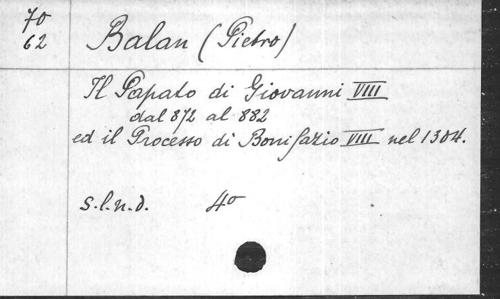 70
62
Balan (Pietro)
Il Papato di Giovanni VIII
dal 872 al 882
ed il Processo di Bonifazio VIII nel 1304.
s.l.n.d. 4o